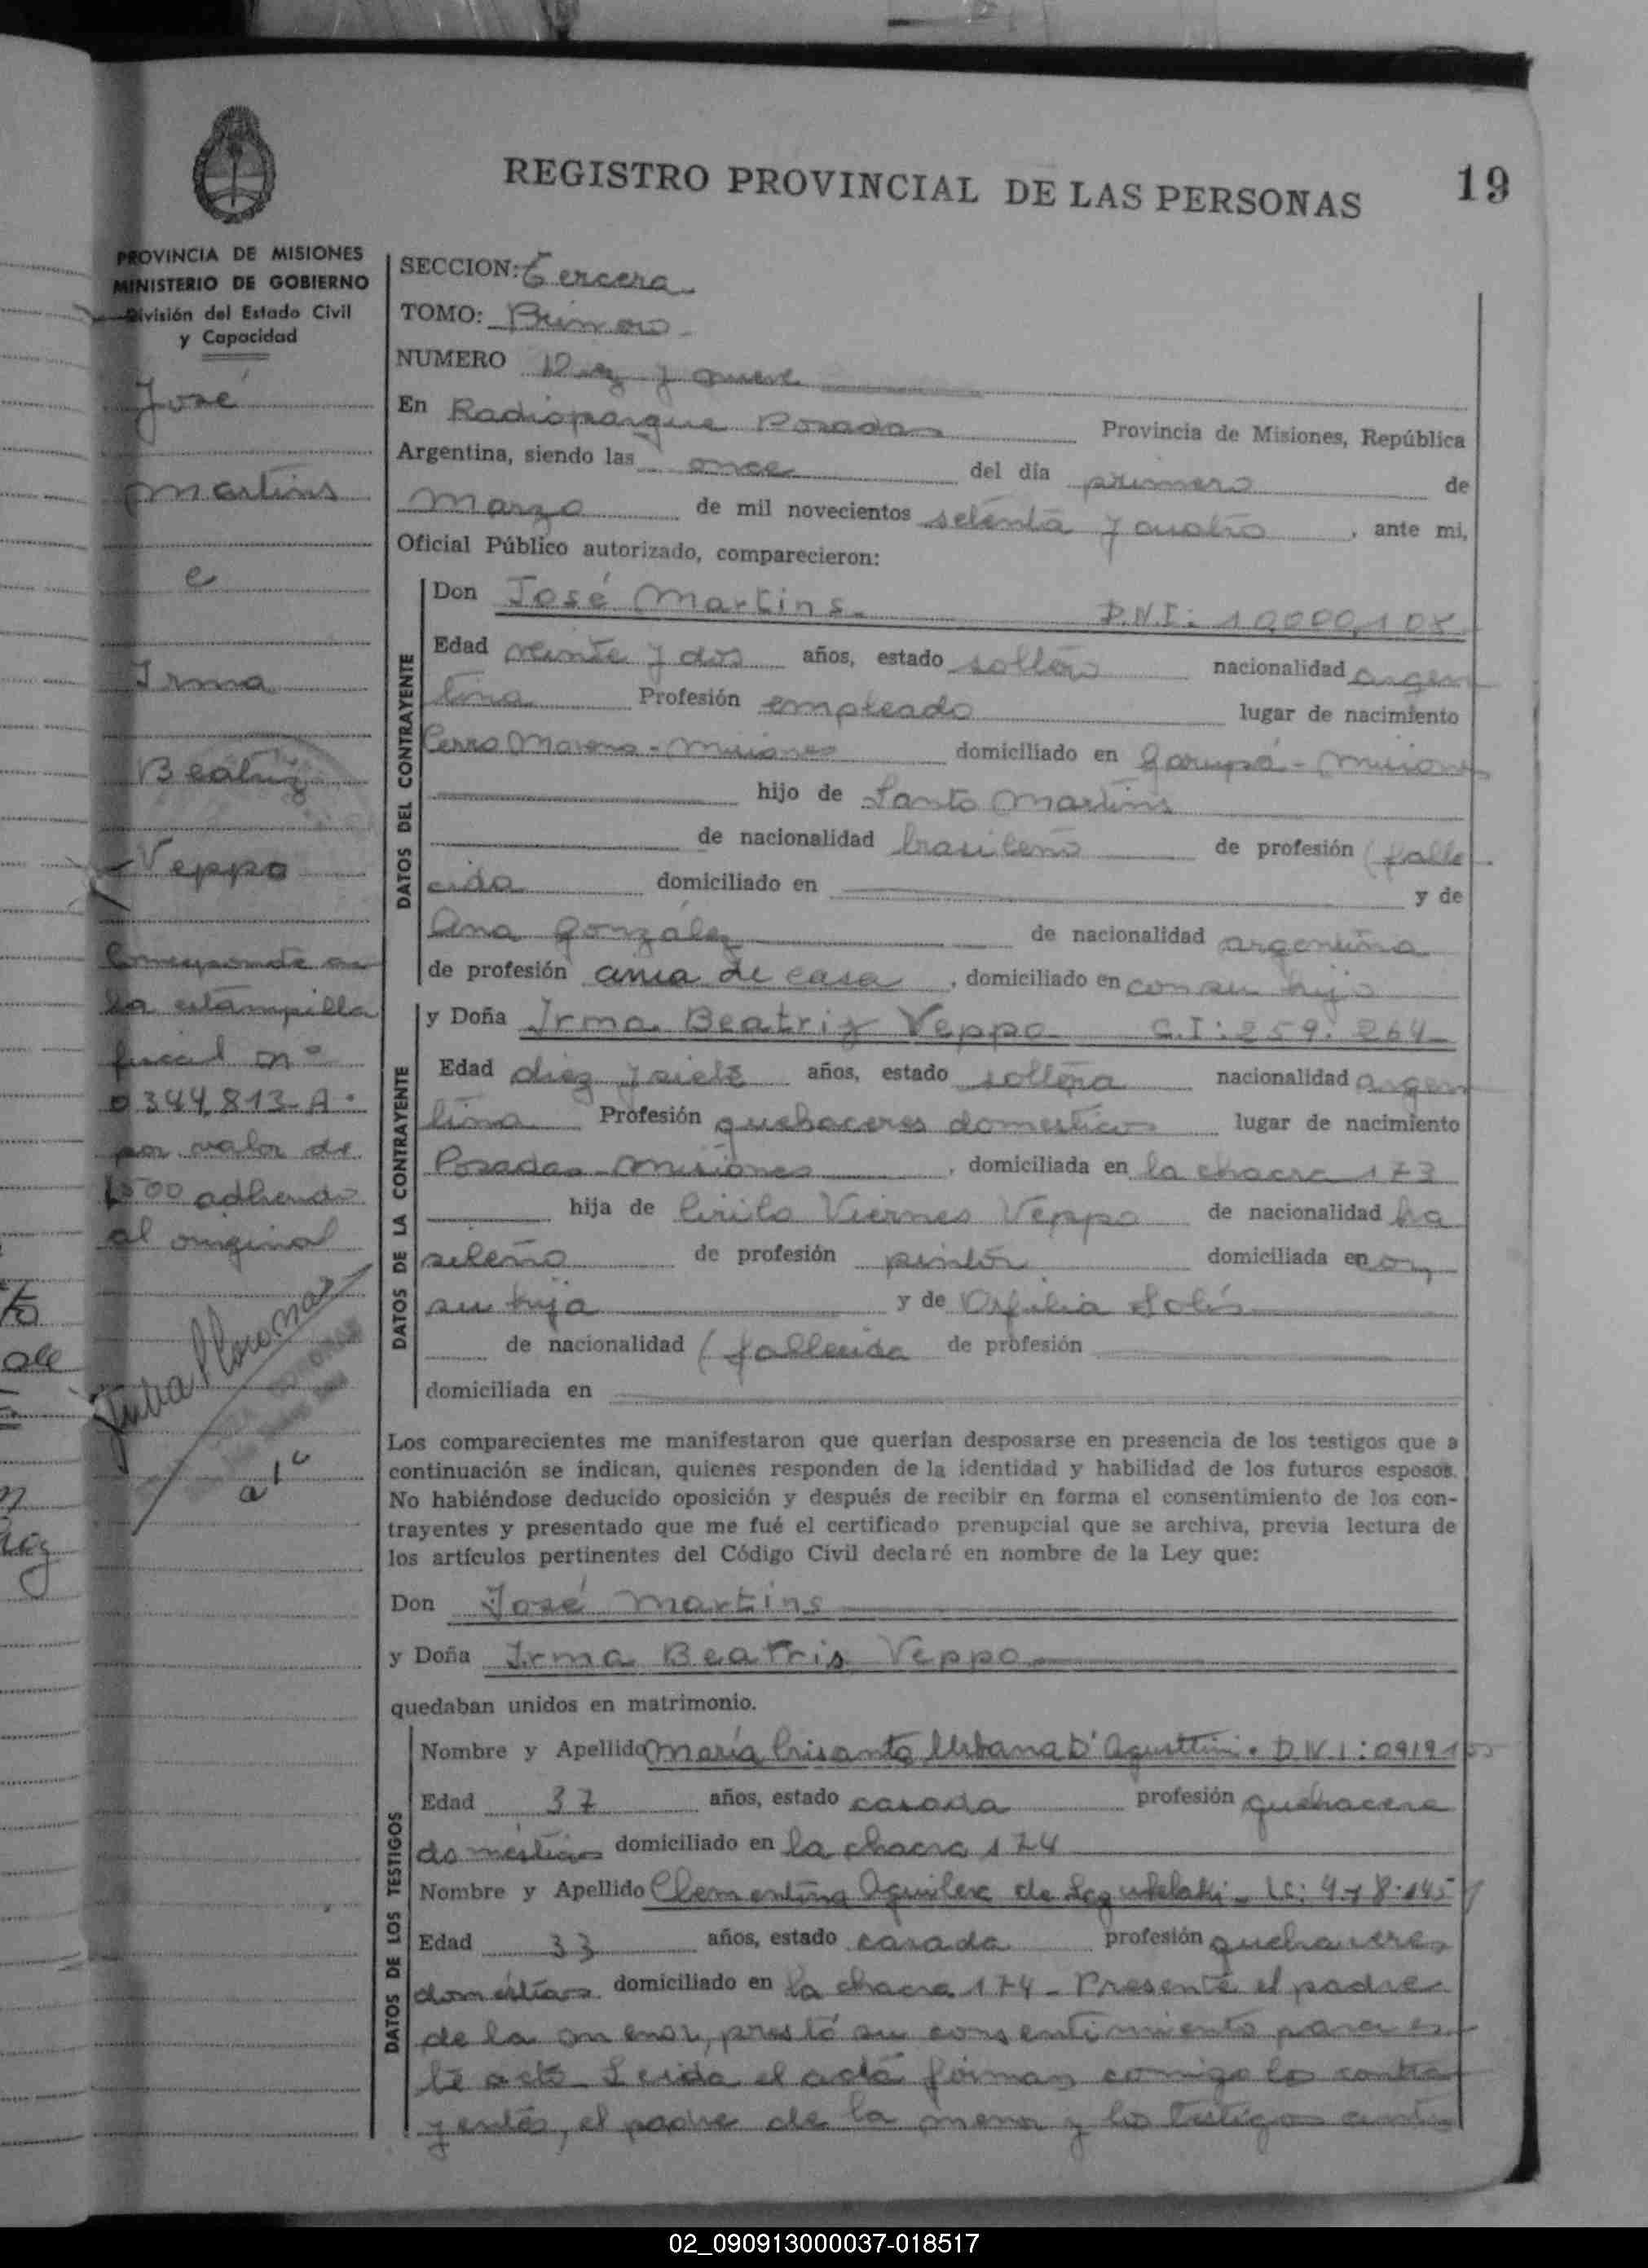 REGISTRO PROVINCIAL DE LAS PERSONAS
19
PROVINCIA DE MISIONES
MINISTERIO DE GOBIERNO
División del Estado Civil
y Capacidad
José
Martins
e
Irma
Beatriz
Veppo
Corresponde a
la estampilla
fiscal nº
0344.813-A.
por valor de
adherido
al original
SECCION: Tercera
TOMO: Primero
NUMERO Diez y nueve
En Radioparque Posadas Provincia de Misiones, República
Argentina, siendo las once del día primero de
Marzo de mil novecientos setenta y cuatro, ante mi,
Oficial Público autorizado, comparecieron:
DATOS DEL CONTRAYENTE
Don José Martins. D.N.I: 10.000.108
Edad veinte y dos años, estado soltero nacionalidad argen
tina Profesión empleado lugar de nacimiento
Cerro Moreno - Misiones domiciliado en Garupá - Misiones
hijo de Santo Martins
de nacionalidad brasileño de profesión (falle
cido domiciliado en y de
Ana González de nacionalidad argentina
de profesión ama de casa, domiciliado en con su hijo
DATOS DE LA CONTRAYENTE
y Doña Irma Beatriz Veppo C.I: 259.264
Edad diez y siete años, estado soltera nacionalidad argen
tina Profesión quehaceres domesticos lugar de nacimiento
Posadas - Misiones, domiciliada en la chacra 173
hija de Cirilo Viernes Veppo de nacionalidad bra
sileño de profesión pintor domiciliada en con
su hija y de Orfilia Solís
de nacionalidad (fallecida de profesión
domiciliada en
Los comparecientes me manifestaron que querían desposarse en presencia de los testigos que a
continuación se indican, quienes responden de la identidad y habilidad de los futuros esposos.
No habiéndose deducido oposición y después de recibir en forma el consentimiento de los con-
trayentes y presentado que me fué el certificado prenupcial que se archiva, previa lectura de
los artículos pertinentes del Código Civil declaré en nombre de la Ley que:
Don José Martins
y Doña Irma Beatris Veppo
quedaban unidos en matrimonio.
DATOS DE LOS TESTIGOS
Nombre y Apellido María Crisanta Urbana D'Agusttini. D.N.I:
Edad 37 años, estado casada profesión quehacere
domésticos domiciliado en la chacra 174
Nombre y Apellido Clementina Aguilera de
Edad 33 años, estado casada profesión quehaceres
domésticos domiciliado en la chacra 174 - Presente el padre
de la menor, prestó su consentimiento para es-
te acto. Leida el acta firman conmigo los contra
yentes, el padre de la menor y los testigos
02_090913000037-018517